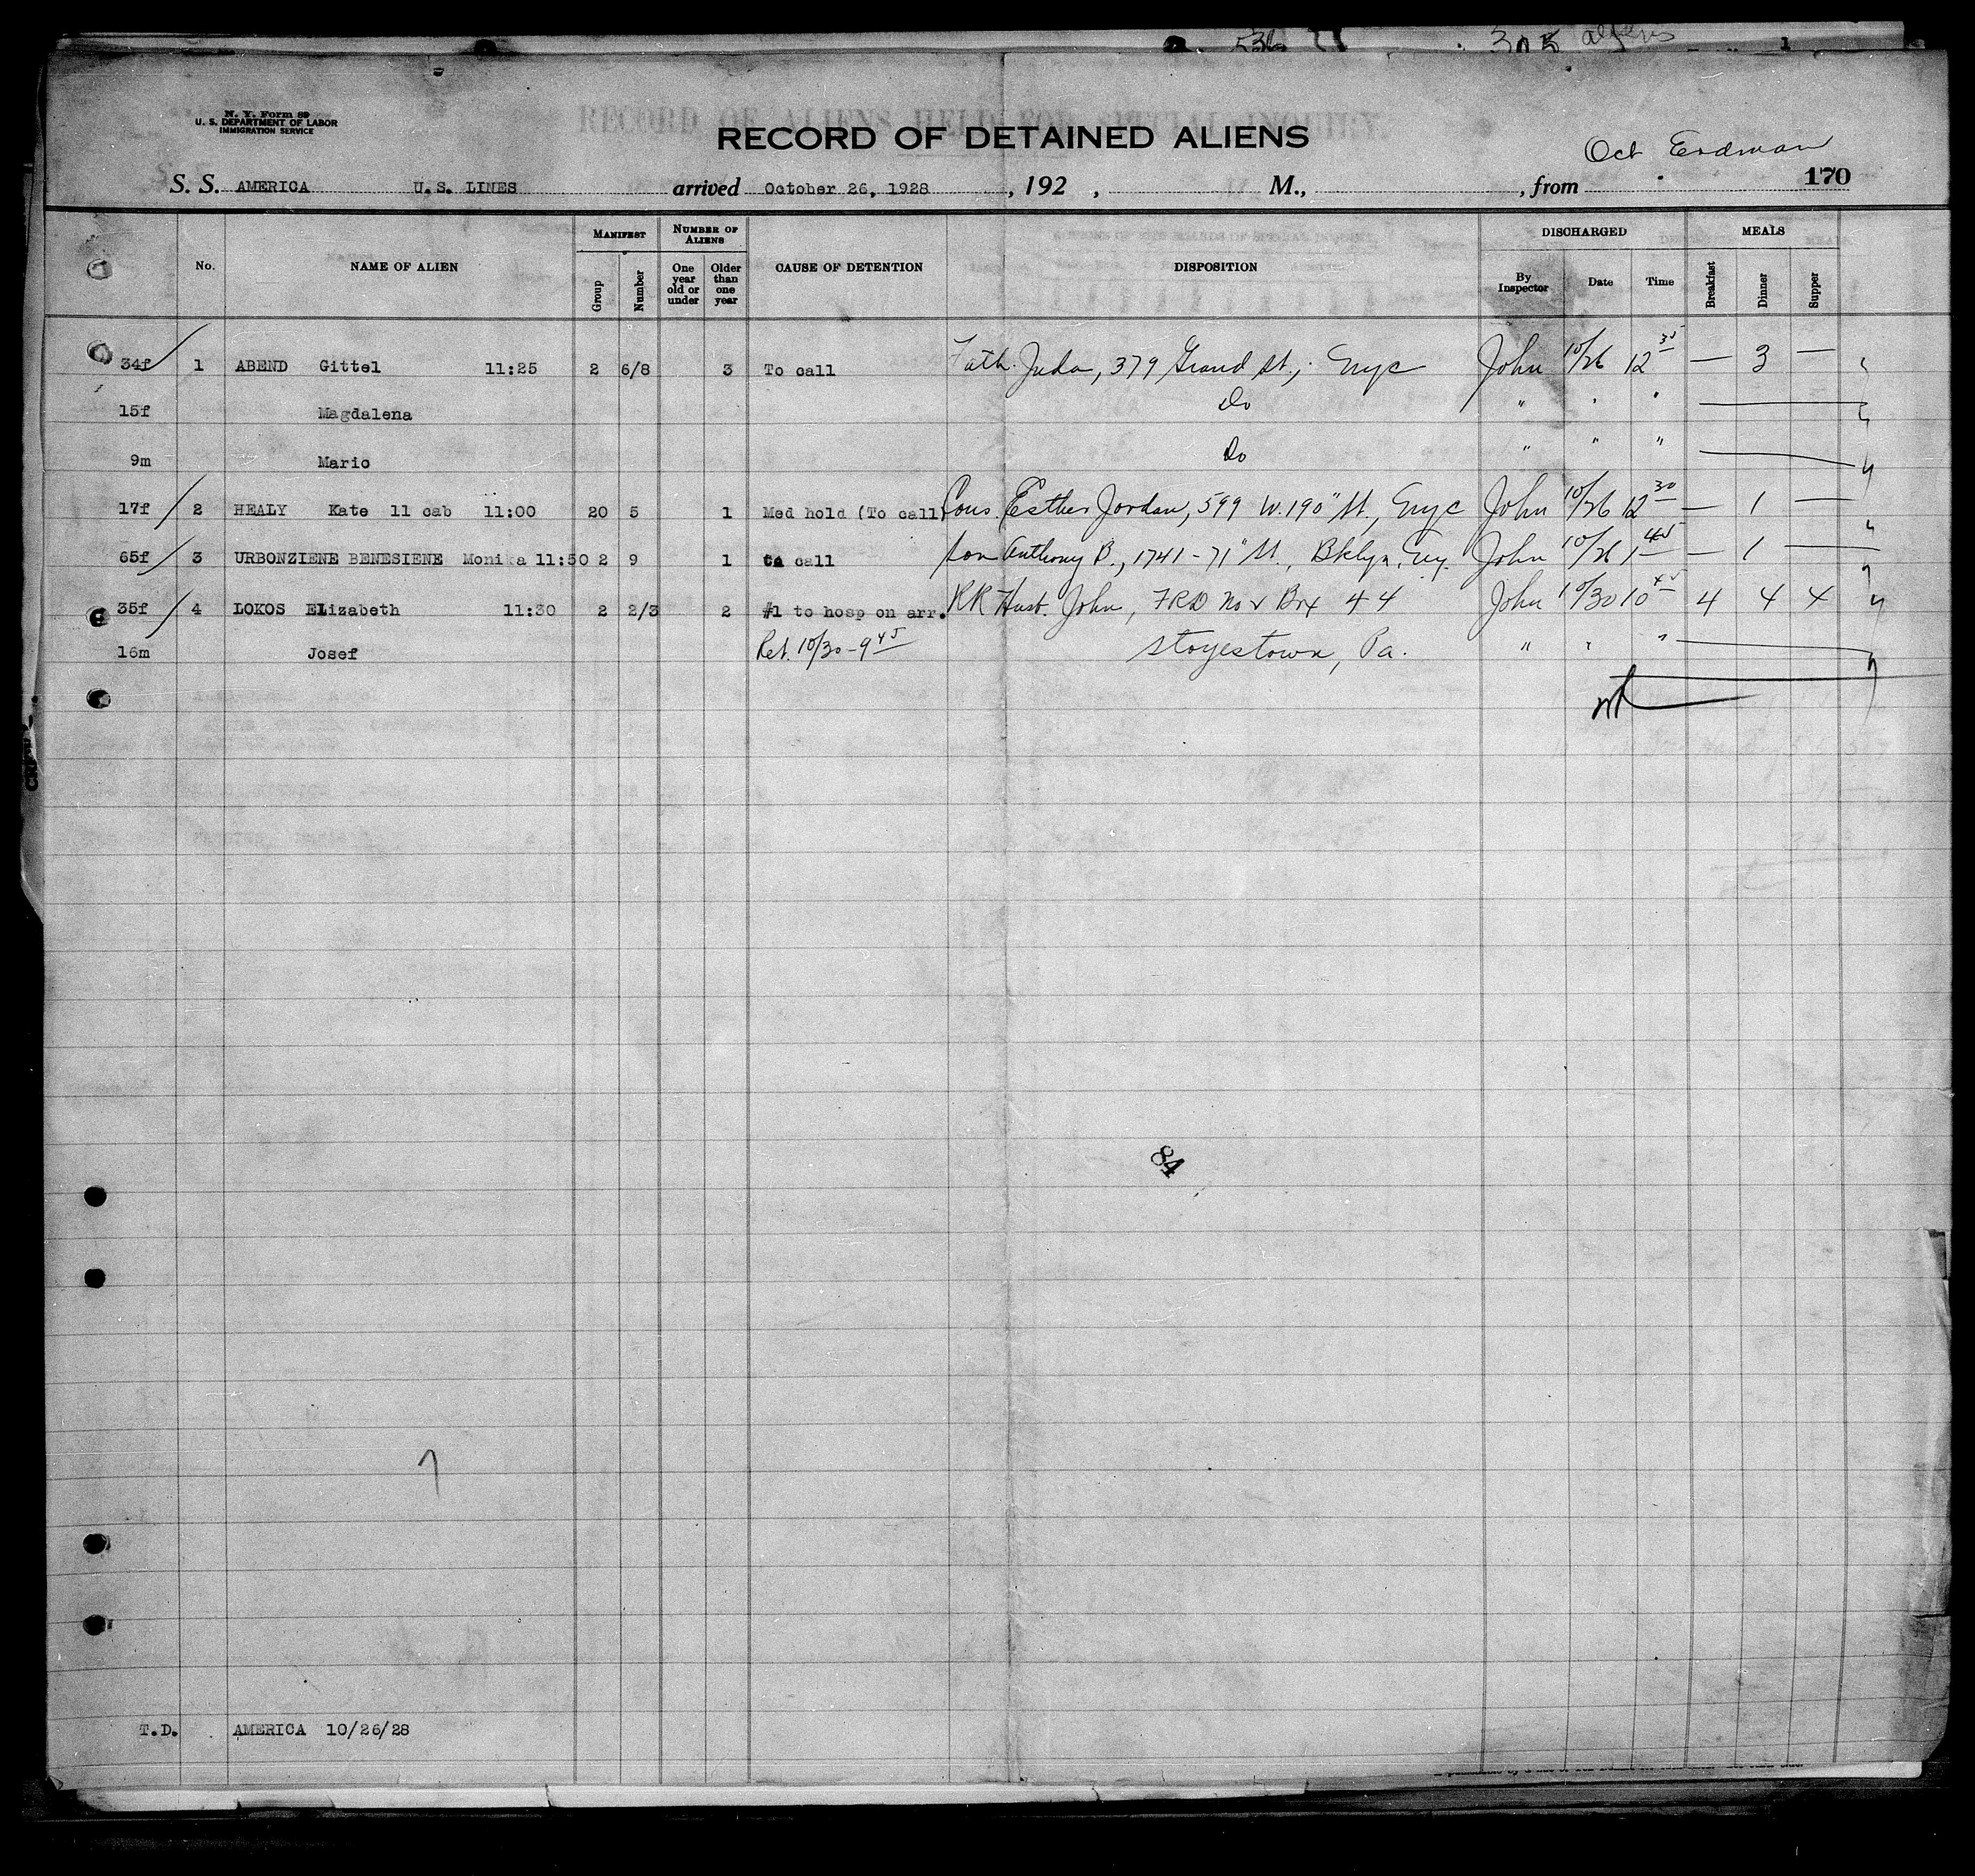 536 305 aliens
N. Y. Form 89
U. S. DEPARTMENT OF LABOR
IMMIGRATION SERVICE
RECORD OF ALIENS HELD FOR SPECIAL INQUIRY.
RECORD OF DETAINED ALIENS
Oct Erdman
S. S. AMERICA U.S. LINES arrived October 26, 1928, 192 , M., , from 170
No. NAME OF ALIEN MANIFEST Group Number NUMBER OF ALIENS One year old or under Older than one year CAUSE OF DETENTION DISPOSITION DISCHARGED By Inspector Date Time MEALS Breakfast Dinner Supper
34f 1 ABEND Gittel 11:25 2 6/8 3 To call Fath. Juda, 379 Grand St., Nyc John 10/26 12 35 — 3 —
15f Magdalena Do " " "
9m Mario Do " " "
17f 2 HEALY Kate 11 cab 11:00 20 5 1 Med hold (To call Cous. Esther Jordan, 599 W. 190" St., Nyc John 10/26 12 30 — 1 —
65f 3 URBONZIENE BENESIENE Monika 11:50 2 9 1 to call Son Anthony B., 1741 - 71" St., Bklyn, Ny. John 10/26 1 45 — 1 —
35f 4 LOKOS Elizabeth 11:30 2 2/3 2 #1 to hosp on arr. RR Husb. John, FRD No 2 Box 44 John 10/30 10 45 4 4 4
16m Josef Ret. 10/30 - 9 45 Stoyestown, Pa. " " "
84
T.D. AMERICA 10/26/28